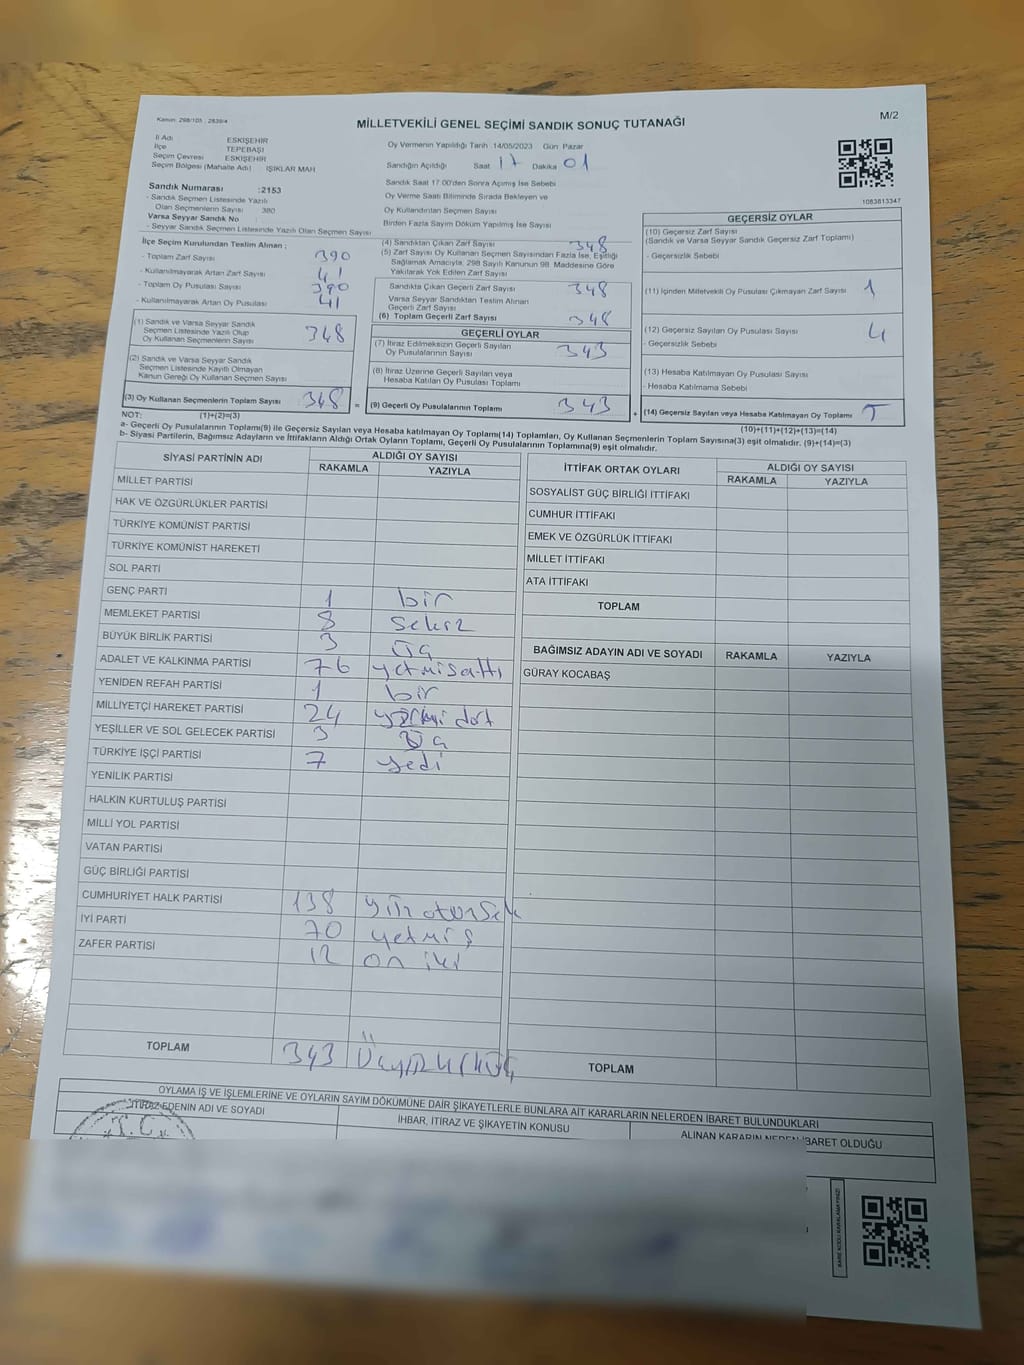 Kanun: 298/105 ; 2839/4
MİLLETVEKİLİ GENEL SEÇİMİ SANDIK SONUÇ TUTANAĞI
M/2
İl Adı ESKİŞEHİR
İlçe TEPEBAŞI
Seçim Çevresi ESKİŞEHİR
Seçim Bölgesi (Mahalle Adı) : IŞIKLAR MAH
Sandık Numarası :2153
- Sandık Seçmen Listesinde Yazılı
Olan Seçmenlerin Sayısı : 380
Varsa Seyyar Sandık No :
- Seyyar Sandık Seçmen Listesinde Yazılı Olan Seçmen Sayısı :
Oy Vermenin Yapıldığı Tarih 14/05/2023 Gün Pazar
Sandığın Açıldığı Saat 17 Dakika 01
Sandık Saat 17.00'den Sonra Açımış İse Sebebi
Oy Verme Saati Bitiminde Sırada Bekleyen ve
Oy Kullandırılan Seçmen Sayısı
Birden Fazla Sayım Döküm Yapılmış İse Sayısı
1083813347
İlçe Seçim Kurulundan Teslim Alınan ;
- Toplam Zarf Sayısı 390
- Kullanılmayarak Artan Zarf Sayısı 41
- Toplam Oy Pusulası Sayısı 390
- Kullanılmayarak Artan Oy Pusulası 41
(1) Sandık ve Varsa Seyyar Sandık
Seçmen Listesinde Yazılı Olup
Oy Kullanan Seçmenlerin Sayısı 348
(2) Sandık ve Varsa Seyyar Sandık
Seçmen Listesinde Kayıtlı Olmayan
Kanun Gereği Oy Kullanan Seçmen Sayısı
(3) Oy Kullanan Seçmenlerin Toplam Sayısı 348 =
(4) Sandıktan Çıkan Zarf Sayısı 348
(5) Zarf Sayısı Oy Kullanan Seçmen Sayısından Fazla İse, Eşitliği
Sağlamak Amacıyla, 298 Sayılı Kanunun 98. Maddesine Göre
Yakılarak Yok Edilen Zarf Sayısı
Sandıkta Çıkan Geçerli Zarf Sayısı 348
Varsa Seyyar Sandıktan Teslim Alınan
Geçerli Zarf Sayısı
(6) Toplam Geçerli Zarf Sayısı 348
GEÇERLİ OYLAR
(7) İtiraz Edilmeksizin Geçerli Sayılan
Oy Pusulalarının Sayısı 343
(8) İtiraz Üzerine Geçerli Sayılan veya
Hesaba Katılan Oy Pusulası Toplamı
(9) Geçerli Oy Pusulalarının Toplamı 343 +
GEÇERSİZ OYLAR
(10) Geçersiz Zarf Sayısı
(Sandık ve Varsa Seyyar Sandık Geçersiz Zarf Toplamı)
- Geçersizlik Sebebi
(11) İçinden Milletvekili Oy Pusulası Çıkmayan Zarf Sayısı 1
(12) Geçersiz Sayılan Oy Pusulası Sayısı 4
- Geçersizlik Sebebi
(13) Hesaba Katılmayan Oy Pusulası Sayısı
- Hesaba Katılmama Sebebi
(14) Geçersiz Sayılan veya Hesaba Katılmayan Oy Toplamı 5
NOT: (1)+(2)=(3)
(10)+(11)+(12)+(13)=(14)
a- Geçerli Oy Pusulalarının Toplamı(9) ile Geçersiz Sayılan veya Hesaba katılmayan Oy Toplamı(14) Toplamları, Oy Kullanan Seçmenlerin Toplam Sayısına(3) eşit olmalıdır. (9)+(14)=(3)
b- Siyasi Partilerin, Bağımsız Adayların ve İttifakların Aldığı Ortak Oyların Toplamı, Geçerli Oy Pusulalarının Toplamına(9) eşit olmalıdır.
SİYASİ PARTİNİN ADI ALDIĞI OY SAYISI
RAKAMLA YAZIYLA
MİLLET PARTİSİ
HAK VE ÖZGÜRLÜKLER PARTİSİ
TÜRKİYE KOMÜNİST PARTİSİ
TÜRKİYE KOMÜNİST HAREKETİ
SOL PARTİ
GENÇ PARTİ 1 bir
MEMLEKET PARTİSİ 8 sekiz
BÜYÜK BİRLİK PARTİSİ 3 üç
ADALET VE KALKINMA PARTİSİ 76 yetmişaltı
YENİDEN REFAH PARTİSİ 1 bir
MİLLİYETÇİ HAREKET PARTİSİ 24 yirmi dört
YEŞİLLER VE SOL GELECEK PARTİSİ 3 üç
TÜRKİYE İŞÇİ PARTİSİ 7 yedi
YENİLİK PARTİSİ
HALKIN KURTULUŞ PARTİSİ
MİLLİ YOL PARTİSİ
VATAN PARTİSİ
GÜÇ BİRLİĞİ PARTİSİ
CUMHURİYET HALK PARTİSİ 138
İYİ PARTİ 70 yetmiş
ZAFER PARTİSİ 12 on iki
TOPLAM 343
İTTİFAK ORTAK OYLARI ALDIĞI OY SAYISI
RAKAMLA YAZIYLA
SOSYALİST GÜÇ BİRLİĞİ İTTİFAKI
CUMHUR İTTİFAKI
EMEK VE ÖZGÜRLÜK İTTİFAKI
MİLLET İTTİFAKI
ATA İTTİFAKI
TOPLAM
BAĞIMSIZ ADAYIN ADI VE SOYADI RAKAMLA YAZIYLA
GÜRAY KOCABAŞ
TOPLAM
OYLAMA İŞ VE İŞLEMLERİNE VE OYLARIN SAYIM DÖKÜMÜNE DAİR ŞİKAYETLERLE BUNLARA AİT KARARLARIN NELERDEN İBARET BULUNDUKLARI
İTİRAZ EDENİN ADI VE SOYADI İHBAR, İTİRAZ VE ŞİKAYETİN KONUSU ALINAN KARARIN NEDEN İBARET OLDUĞU
T.C.